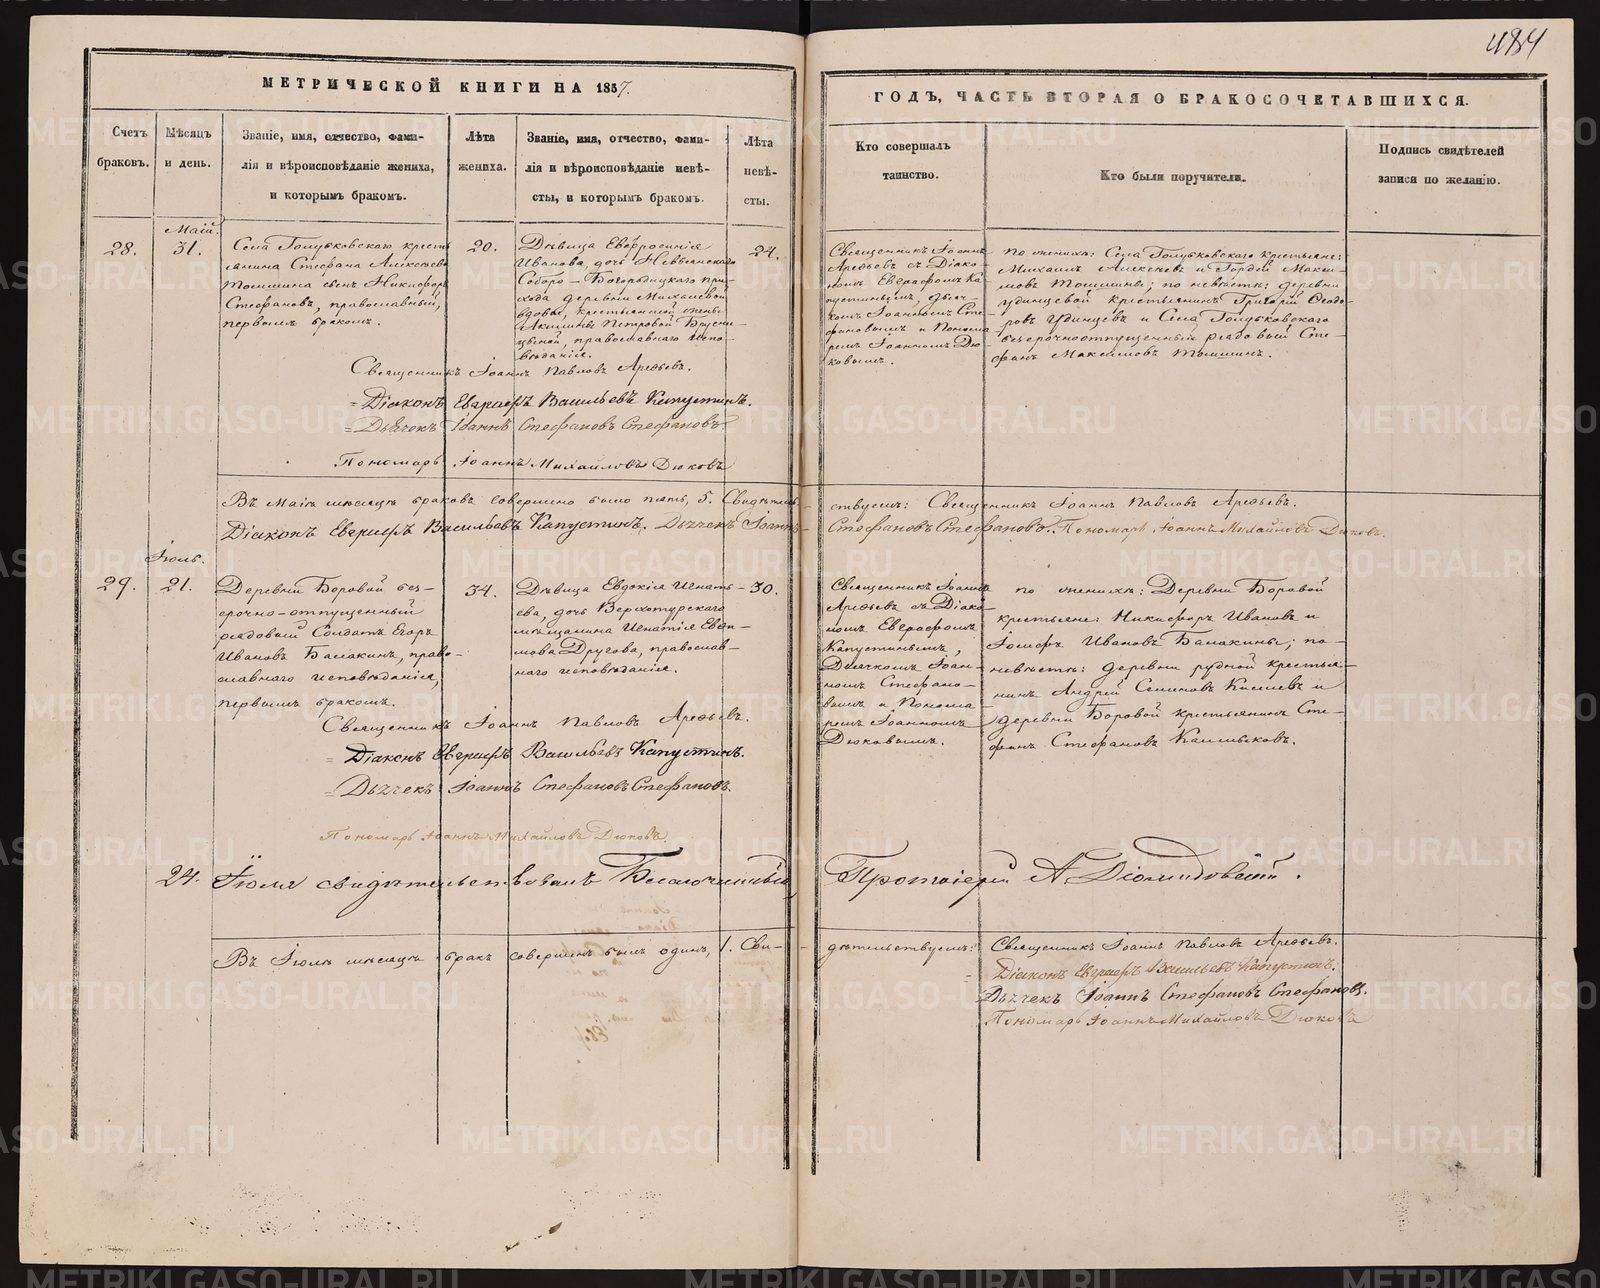 484
МЕТРИЧЕСКОЙ КНИГИ НА 1857.
ГОДЪ, ЧАСТЬ ВТОРАЯ О БРАКОСОЧЕТАВШИХСЯ.
Счетъ
браковъ.
Мѣсяцъ
и день.
Званіе, имя, отчество, фами-
лія и вѣроисповѣданіе жениха,
и которымъ бракомъ.
Лѣта
жениха.
Званіе, имя, отчество, фами-
лія и вѣроисповѣданіе невѣ-
сты, и которымъ бракомъ.
Лѣта
невѣ-
сты.
Кто совершалъ
таинство.
Кто были поручители.
Подпись свидѣтелей
записи по желанію.
28.
Маій.
31.
Села Голубковскаго кресть
янина Стефана Алексѣева
Томшина сынъ Никифоръ
Стефановъ, православный,
первымъ бракомъ.
20.
Дѣвица Евфросинія
Иванова, дочь Невьянскаго
Соборо-Богородицкаго при-
хода деревни Михалевой
вдовы, крестьянской жены
Акилины Петровой Брусни-
цыной, православнаго испо-
вѣданія.
24.
Священникъ Іоаннъ
Арефьевъ съ Діако-
номъ Евграфомъ Ка
пустинымъ, Дьяч-
комъ Іоанномъ Сте-
фановымъ и Понома
ремъ Іоанномъ Дю-
ковымъ.
По женихѣ: Села Голубковскаго крестьяне:
Михаилъ Алексѣевъ и Гордей Макси-
мовъ Томшины; по невѣстѣ: деревни
Удинцевой крестьянинъ Григорій Ѳеодо-
ровъ Удинцевъ и Села Голубковскаго
безсрочноотпущенный рядовый Сте-
фанъ Максимовъ Томшинъ.
Священникъ Іоаннъ Павловъ Арефьевъ.
Діаконъ Евграфъ Васильевъ Капустинъ.
Дьячекъ Іоаннъ Стефановъ Стефановъ.
Пономарь Іоаннъ Михайловъ Дюковъ
Въ Маіѣ мѣсяцѣ браковъ совершено было пять, 5. Свидѣтель-
ствуемъ: Священникъ Іоаннъ Павловъ Арефьевъ.
Діаконъ Евграфъ Васильевъ Капустинъ. Дьячекъ Іоаннъ
Стефановъ Стефановъ. Пономарь Іоаннъ Михайловъ Дюковъ.
29.
Іюль.
21.
Деревни Боровой без-
срочно-отпущенный
рядовый Солдатъ Егоръ
Ивановъ Балакинъ, право-
славнаго исповѣданія,
первымъ бракомъ.
34.
Дѣвица Евдокія Игнать-
ева, дочь Верхотурскаго
мѣщанина Игнатія Евѳи-
мова Другова, православ-
наго исповѣданія.
30.
Священникъ Іоаннъ
Арефьевъ съ Діако-
номъ Евграфомъ
Капустинымъ,
Дьячкомъ Іоан-
номъ Стефано-
вымъ и Понома-
ремъ Іоанномъ
Дюковымъ.
По женихѣ: Деревни Боровой
крестьяне: Никифоръ Ивановъ и
Іосифъ Ивановъ Балакины; по-
невѣстѣ: деревни рудной крестья-
нинъ Андрей Семеновъ Киселевъ и
деревни Боровой крестьянинъ Сте-
фанъ Стефановъ Калмыковъ.
Священникъ Іоаннъ Павловъ Арефьевъ.
Діаконъ Евграфъ Васильевъ Капустинъ.
Дьячекъ Іоаннъ Стефановъ Стефановъ.
Пономарь Іоаннъ Михайловъ Дюковъ.
24. Іюля свидѣтельствовалъ Благочинный, Протоіерей А Діомидовскій.
Въ Іюлѣ мѣсяцѣ бракъ совершенъ былъ одинъ, 1. Сви-
дѣтельствуемъ: Священникъ Іоаннъ Павловъ Арефьевъ.
Діаконъ Евграфъ Васильевъ Капустинъ.
Дьячекъ Іоаннъ Стефановъ Стефановъ.
Пономарь Іоаннъ Михайловъ Дюковъ
METRIKI.GASO-URAL.RU